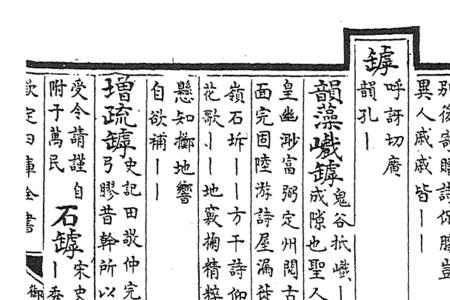 別後寄贈詩
異人戚戚皆丨
罅
呼訝切廣
韻孔丨
韻藻巇罅鬼谷扺巇丨
成隙也聖人
皇幽渺富弼定州閱古
面完固陸游詩屋漏徙
嶺石坼丨丨方干詩仰
花歌丨丨地竅掬精粹
懸知擲地響
自欲補丨丨
增疏罅史記田敬仲完
弓膠昔幹所以
受令請謹自
附于萬民
石罅宋史
丨
欽定四庫全書
御